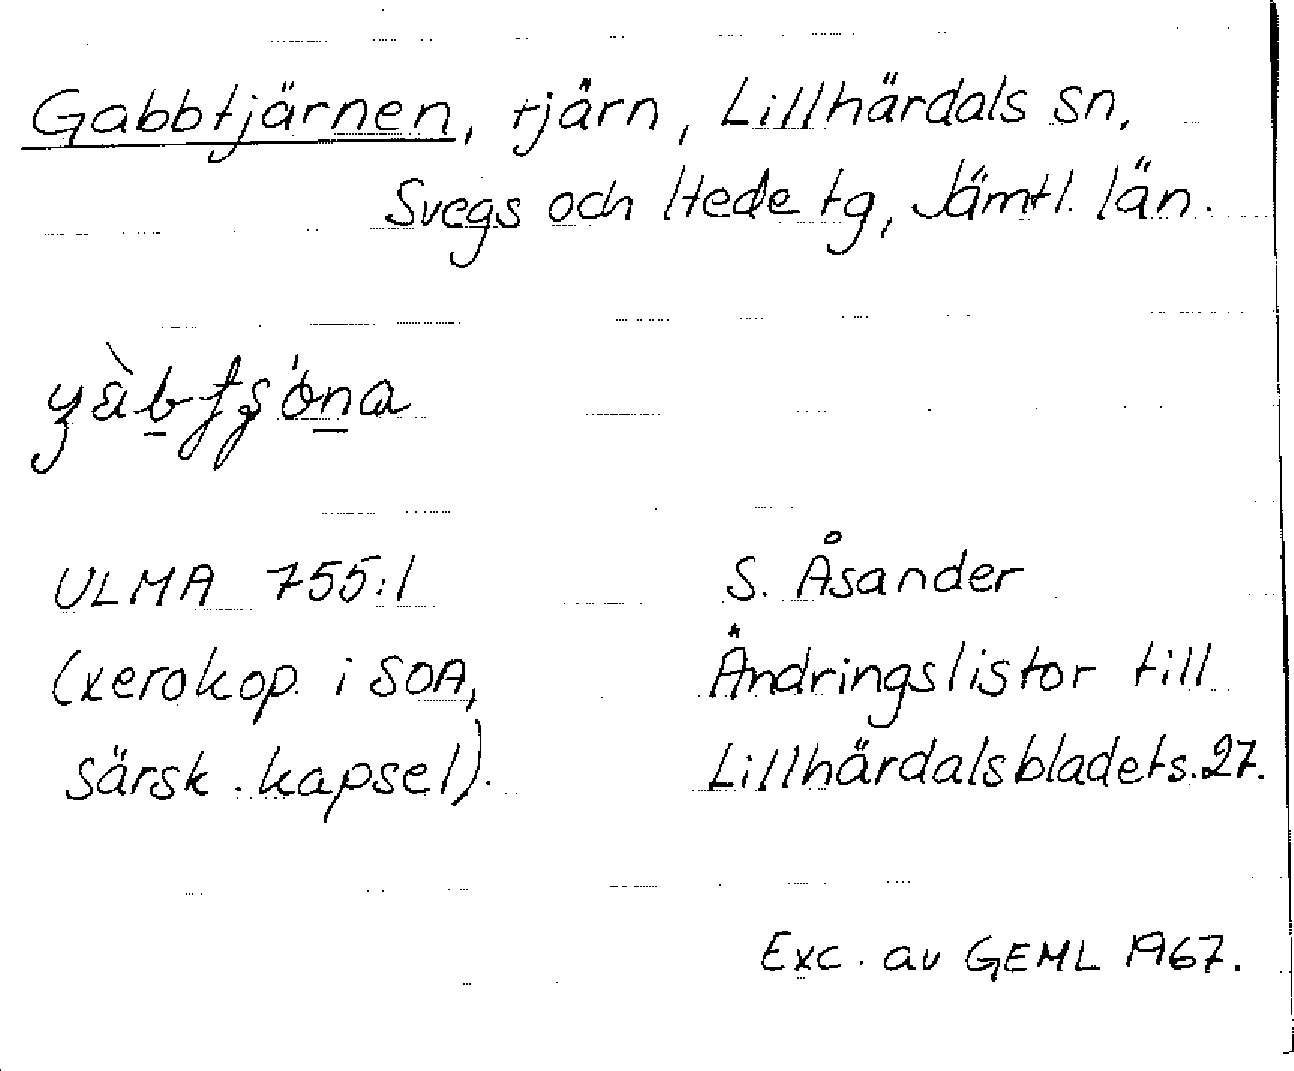 Gabbtjärnen, tjärn, Lillhärdals sn,
Svegs och Hede tg, Jämtl. län.
ULMA 755:1
(xerokop. i SOA,
särsk. kapsel).
S. Åsander
Ändringslistor till
Lillhärdalsbladet s. 27.
Exc. av GEML 1967.